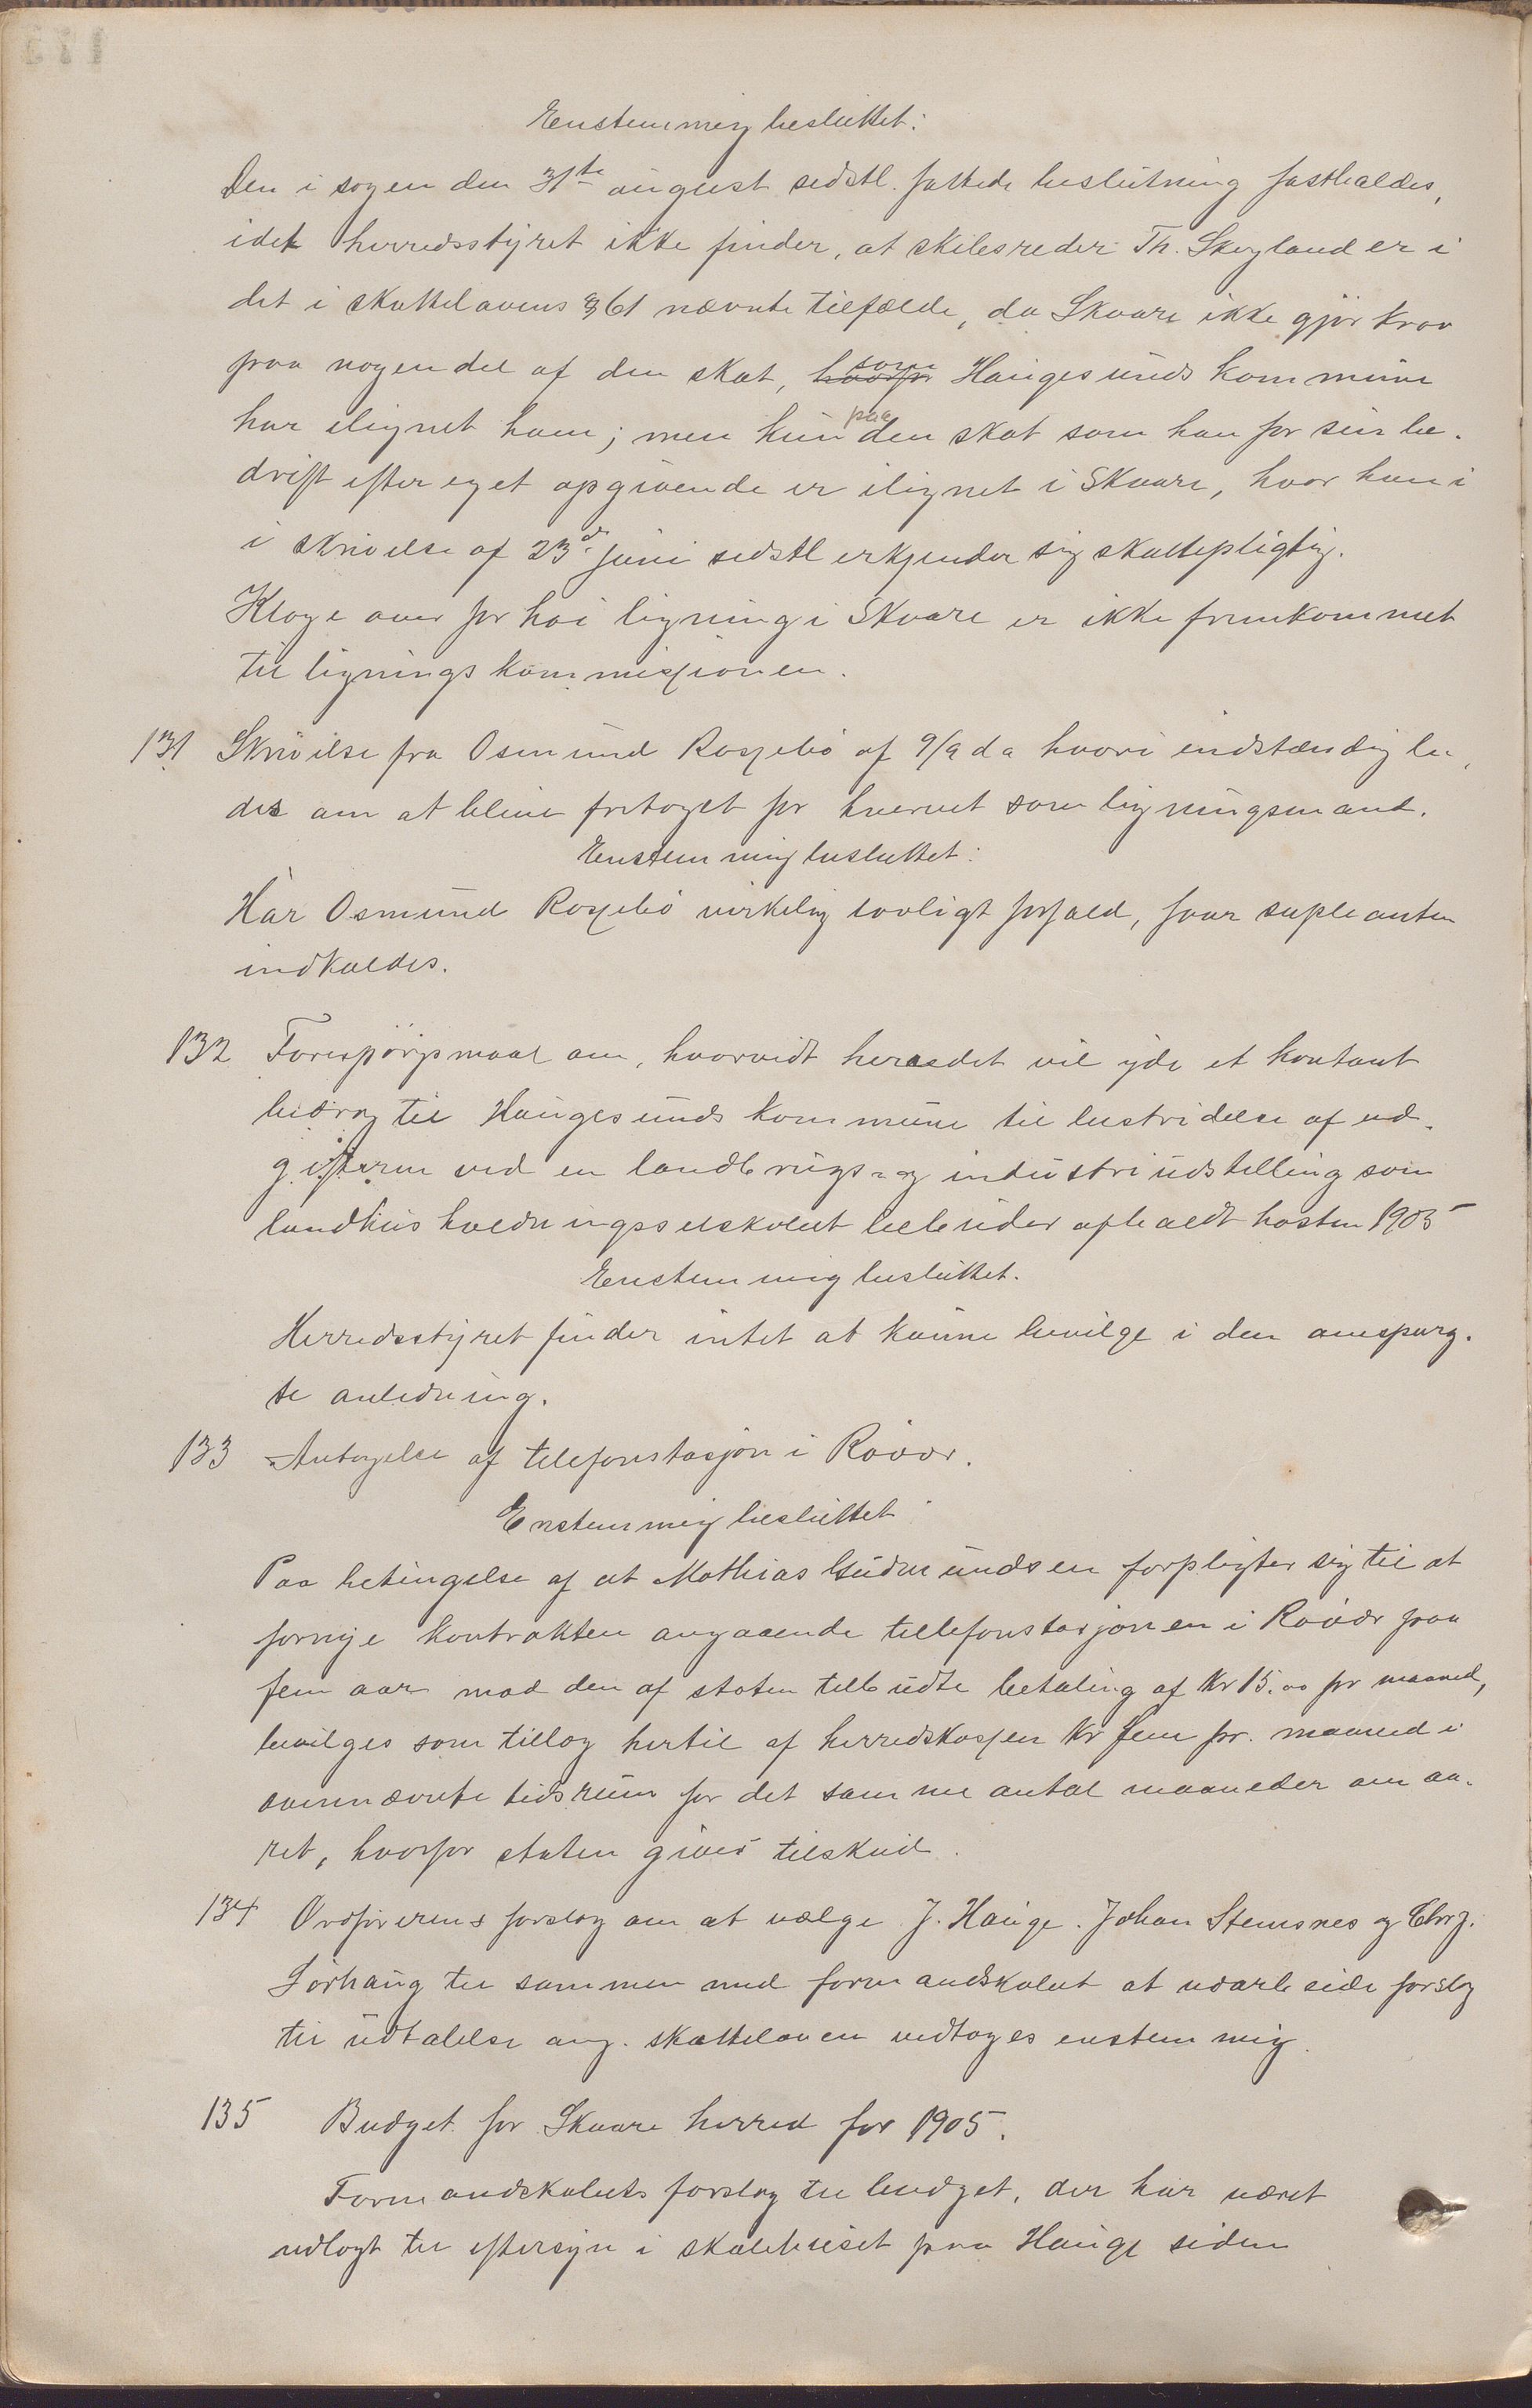 Enstemmig besluttet:
Den i sagen den 31te august sidstl. fattede beslutning fastholdes,
idet herredsstyret ikke finder, at skibsreder Th. Skogland er i
det i skattelovens § 61 nævnte tilfælde, da Skaare ikke gjør krav
paa nogen del af den skat, hvorfor som Haugesunds kommune
har ilignet ham; men kun paa den skat som han for sin be-
drift efter eget opgivende er ilignet i Skaare, hvor han i
i skrivelse af 23de juni sidstl erkjender sig skattepligtig.
Klage over for høi ligning i Skaare er ikke fremkommet
til ligningskommissionen.
131 Skrivelse fra Osmund Rossebø af 9/9 d a hvori indstændig be-
des om at blive fritaget for hvervet som ligningsmand.
Enstemmig besluttet:
Har Osmund Rossebø virkelig lovligt forfald, faar supleanten
indkaldes.
132 Forespørgsmaal om, hvorvidt herredet vil yde et kontant
bidrag til Haugesunds kommune til bestridelse af ud-
gifterne ved en landbrugs- og industriudstilling som
landhusholdningsselskabet tilbuder afholdt høsten 1905
Enstemmig besluttet.
Herredsstyret finder intet at kunne bevilge i den omspurg-
te anledning.
133 Antagelse af telefonstasjon i Røvær.
Enstemmig besluttet:
Paa betingelse af at Mathias Gudmundsen forpligter sig til at
fornye kontrakten angaaende tellefonstasjonen i Røvær paa
fem aar mod den af staten tilbudte betaling af Kr 15.00 pr maaned,
bevilges som tillæg hertil af herredskassen Kr fem pr. maaned i
ovennævnte tidsrum for det samme antal maaneder om aa-
ret, hvorfor staten giver tilskud.
134 Ordførerens forslag om at vælge J. Hauge. Johan Stemsnes og Chr. J.
Sørhaug til sammen med formandskabet at udarbeide forslag
til udtalelse ang. skatteloven vedtoges enstemmig.
135 Budget for Skaare herred for 1905.
Formandskabets forslag til budget, der har været
udlagt til eftersyn i skolehuset paa Hauge siden